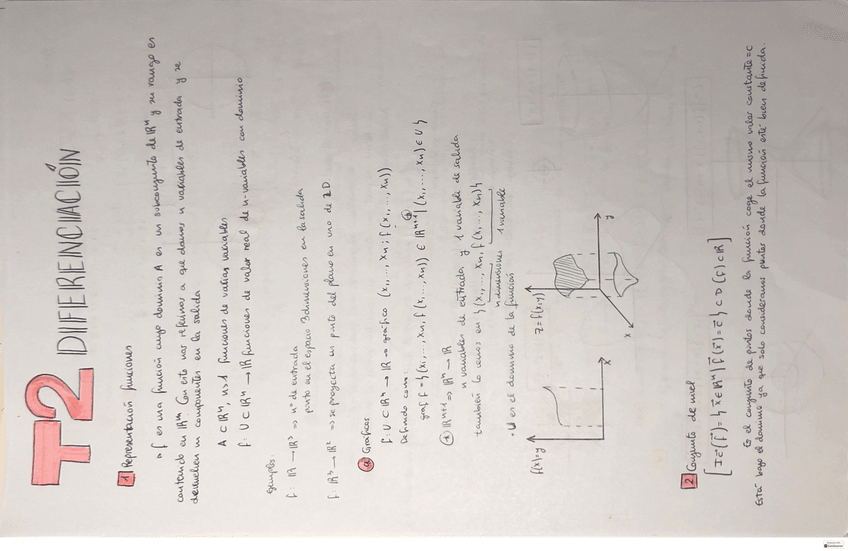 T2 DIFERENCIACIÓN
1 Representación funciones
→ f es una función cuyo dominio A es un subconjunto de ℝⁿ y su rango es
contenido en ℝᵐ. Con esto nos referimos a que damos n variables de entrada y se
devuelven m componentes en la salida
A ⊂ ℝⁿ, n>1 funciones de varias variables
f: U ⊂ ℝⁿ → ℝ funciones de valor real de n-variables con dominio
ejemplos:
f: ℝ → ℝ³ ⇒ nº de entrada
punto en el espacio 3 dimensiones en la salida
f: ℝ³ → ℝ² ⇒ se proyecta un punto del plano en uno de 2D
a Gráficas
f: U ⊂ ℝⁿ → ℝ ⇒ gráfico (x₁, ..., xₙ; f(x₁, ..., xₙ))
Definido como:
graf f = {(x₁, ..., xₙ, f(x₁, ..., xₙ)) ∈ ℝⁿ⁺¹ | (x₁, ..., xₙ) ∈ U}
ℝⁿ⁺¹ ⇒ ℝⁿ → ℝ
n variables de entrada y 1 variable de salida
también lo vemos en {(x₁, ..., xₙ, f(x₁, ..., xₙ)}
n dimensiones 1 variable
· U es el dominio de la función
f(x)=y
x
z = f(x,y)
x
y
2 Conjunto de nivel
f(x⃗) = c⃗} ⊂ D(f) ⊂ ℝ]
Es el conjunto de puntos donde la función coge el mismo valor constante = c
Está bajo el dominio ya que solo consideramos puntos donde la función esté bien definida.